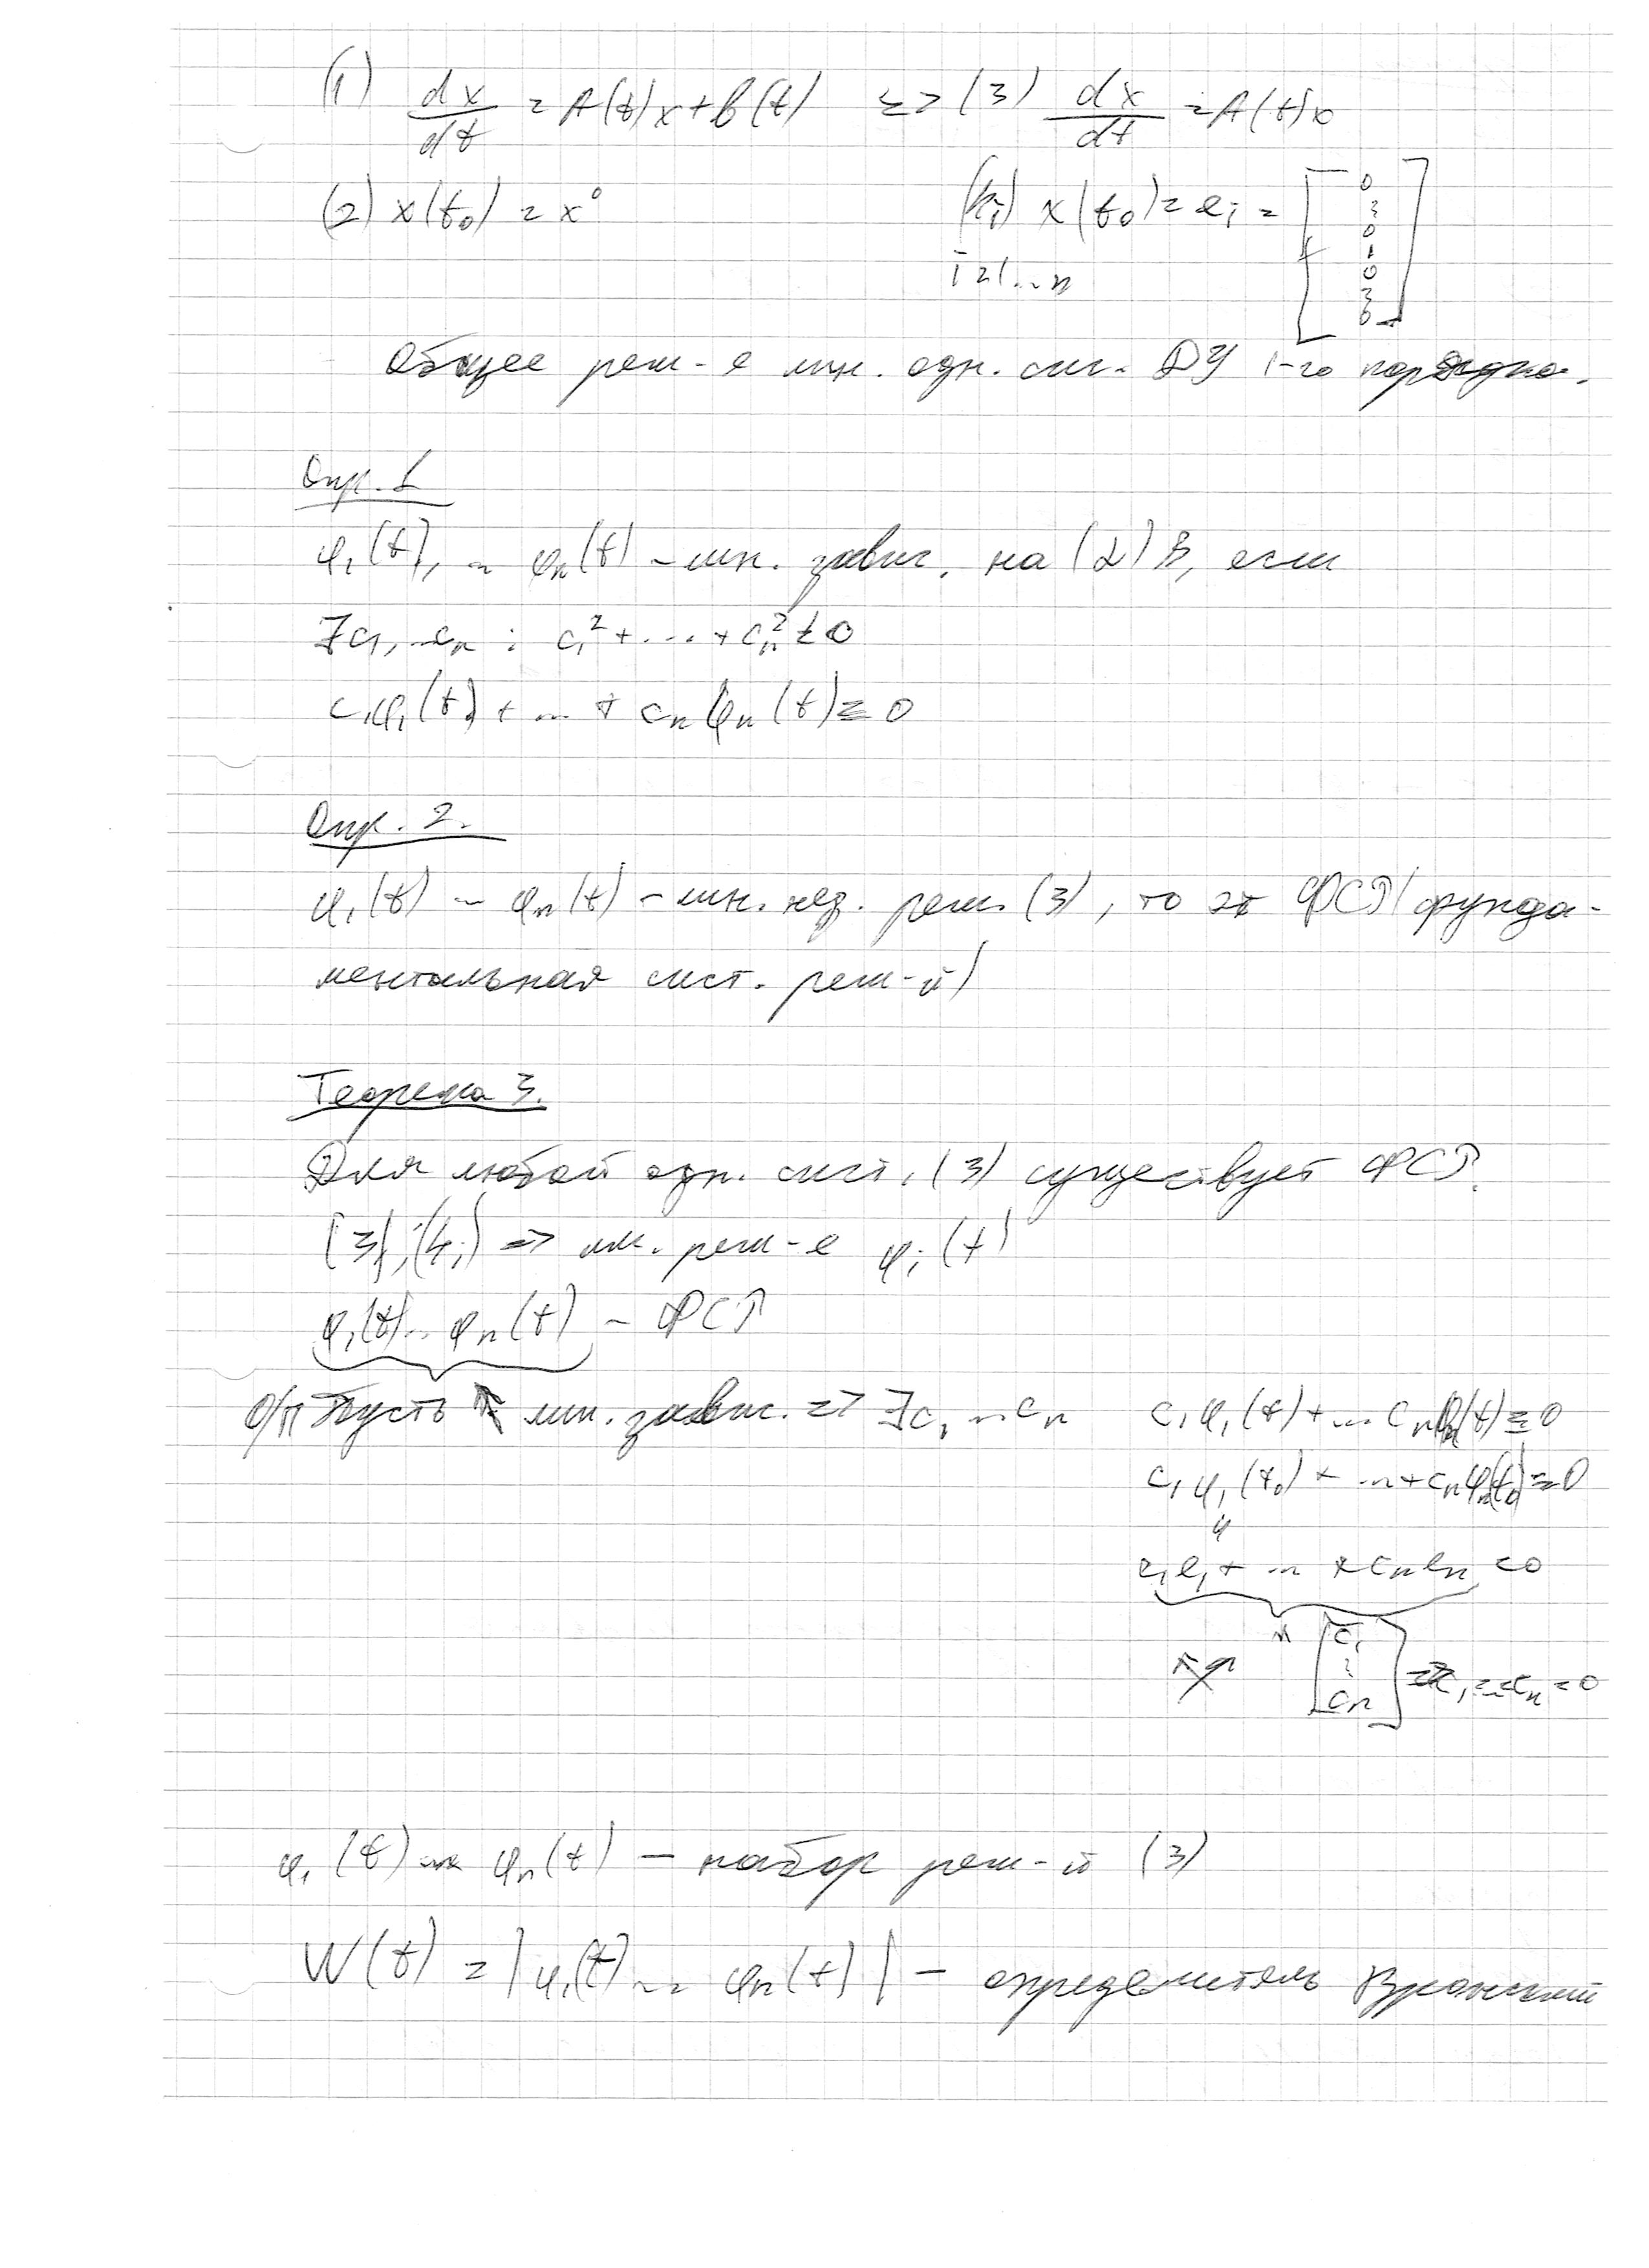 (1) dx/dt = A(t)x + b(t) => (3) dx/dt = A(t)x
(2) x(t₀) = x⁰ (4ᵢ) x(t₀) = eᵢ = [0 ⋮ 0 1 0 ⋮ 0]
i = 1...n
Общее реш-е лин. одн. сис. ДУ 1-го порядка.
Опр. 1
φ₁(t), ... φₙ(t) - лин. завис. на (α)β, если
∃c₁, ...cₙ : c₁² + ... + cₙ² ≠ 0
c₁φ₁(t) + ... + cₙφₙ(t) ≡ 0
Опр. 2.
φ₁(t) ... φₙ(t) - лин. нез. реш. (3), то эт ФСР (фунда-
ментальная сист. реш-й)
Теорема 3.
Для любой одн. сист. (3) существует ФСР.
(3),(4ᵢ) => им. реш-е φᵢ(t)
φ₁(t)... φₙ(t) - ФСР
О/П Пусть ↑ лин. завис. => ∃c₁ ... cₙ c₁φ₁(t) + ... cₙφₙ(t) ≡ 0
c₁φ₁(t₀) + ... + cₙφₙ(t₀) = 0
c₁e₁ + ... + cₙeₙ = 0
[c₁ ⋮ cₙ] => c₁ = ... = cₙ = 0
φ₁(t) ... φₙ(t) - набор реш-й (3)
W(t) = |φ₁(t) ... φₙ(t)| - определитель Вронский